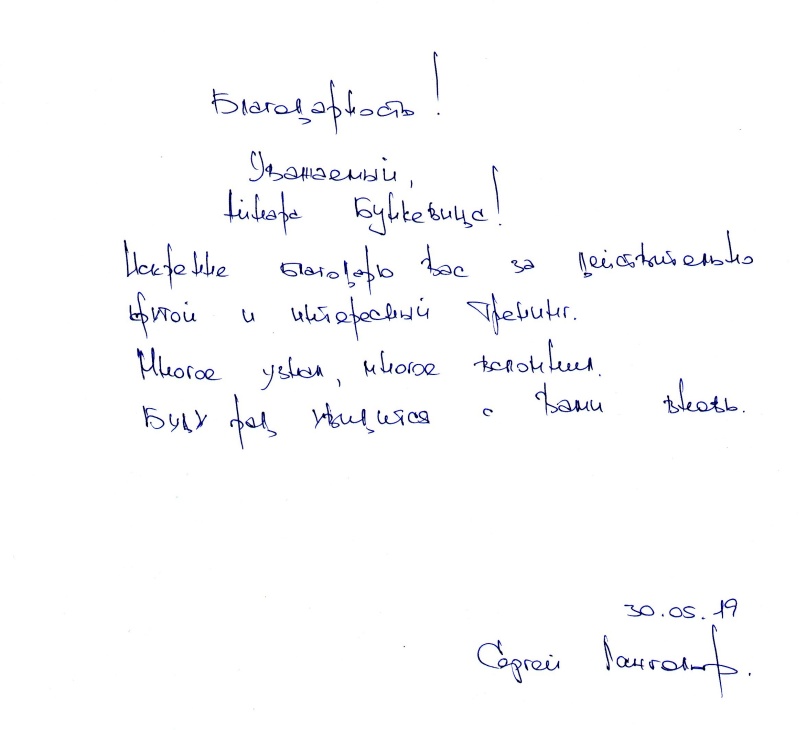 Благодарность!
Уважаемый,
Айнарс Буткевицс!
Искренне благодарю вас за действительно
крутой и интересный тренинг.
Многое узнал, многое вспомнил.
Буду рад увидится с вами вновь.
30.05.19
Сергей